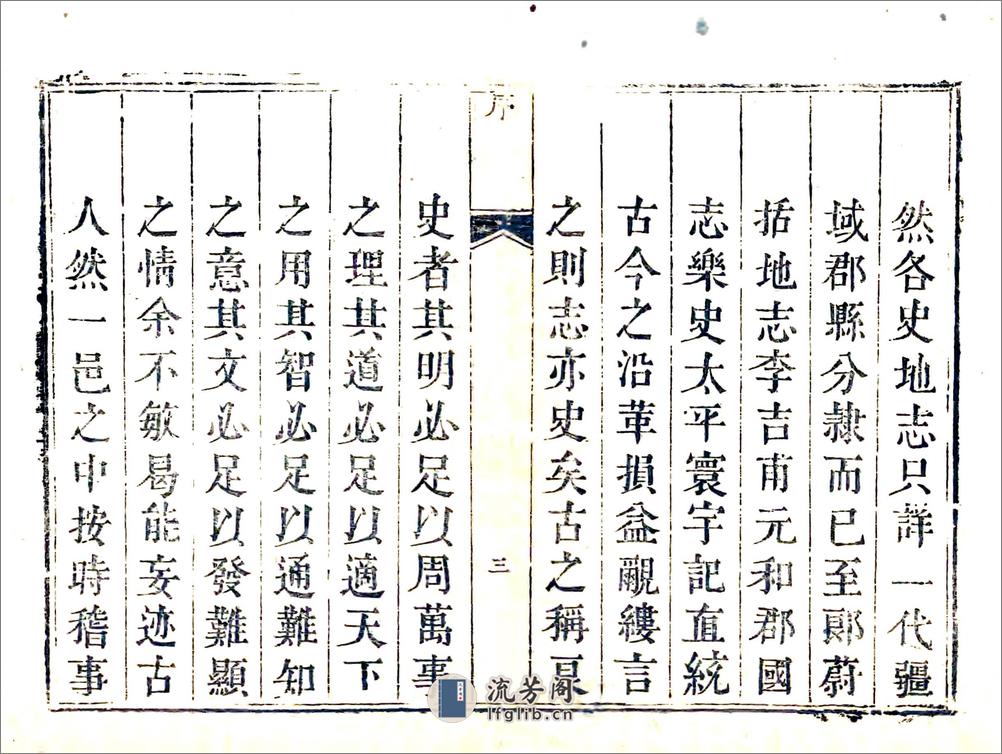 然各史地志只詳一代疆
域郡縣分隸而已至鄖蔚
括地志李吉甫元和郡國
志樂史太平寰宇記直統
古今之沿革損益覼縷言
之則志亦史矣古之稱良
序
三
史者其明必足以周萬事
之理其道必足以適天下
之用其智必足以通難知
之意其文必足以發難顯
之情余不敏曷能妄迹古
人然一邑之中按時稽事
流芳阁
lfglib.cn